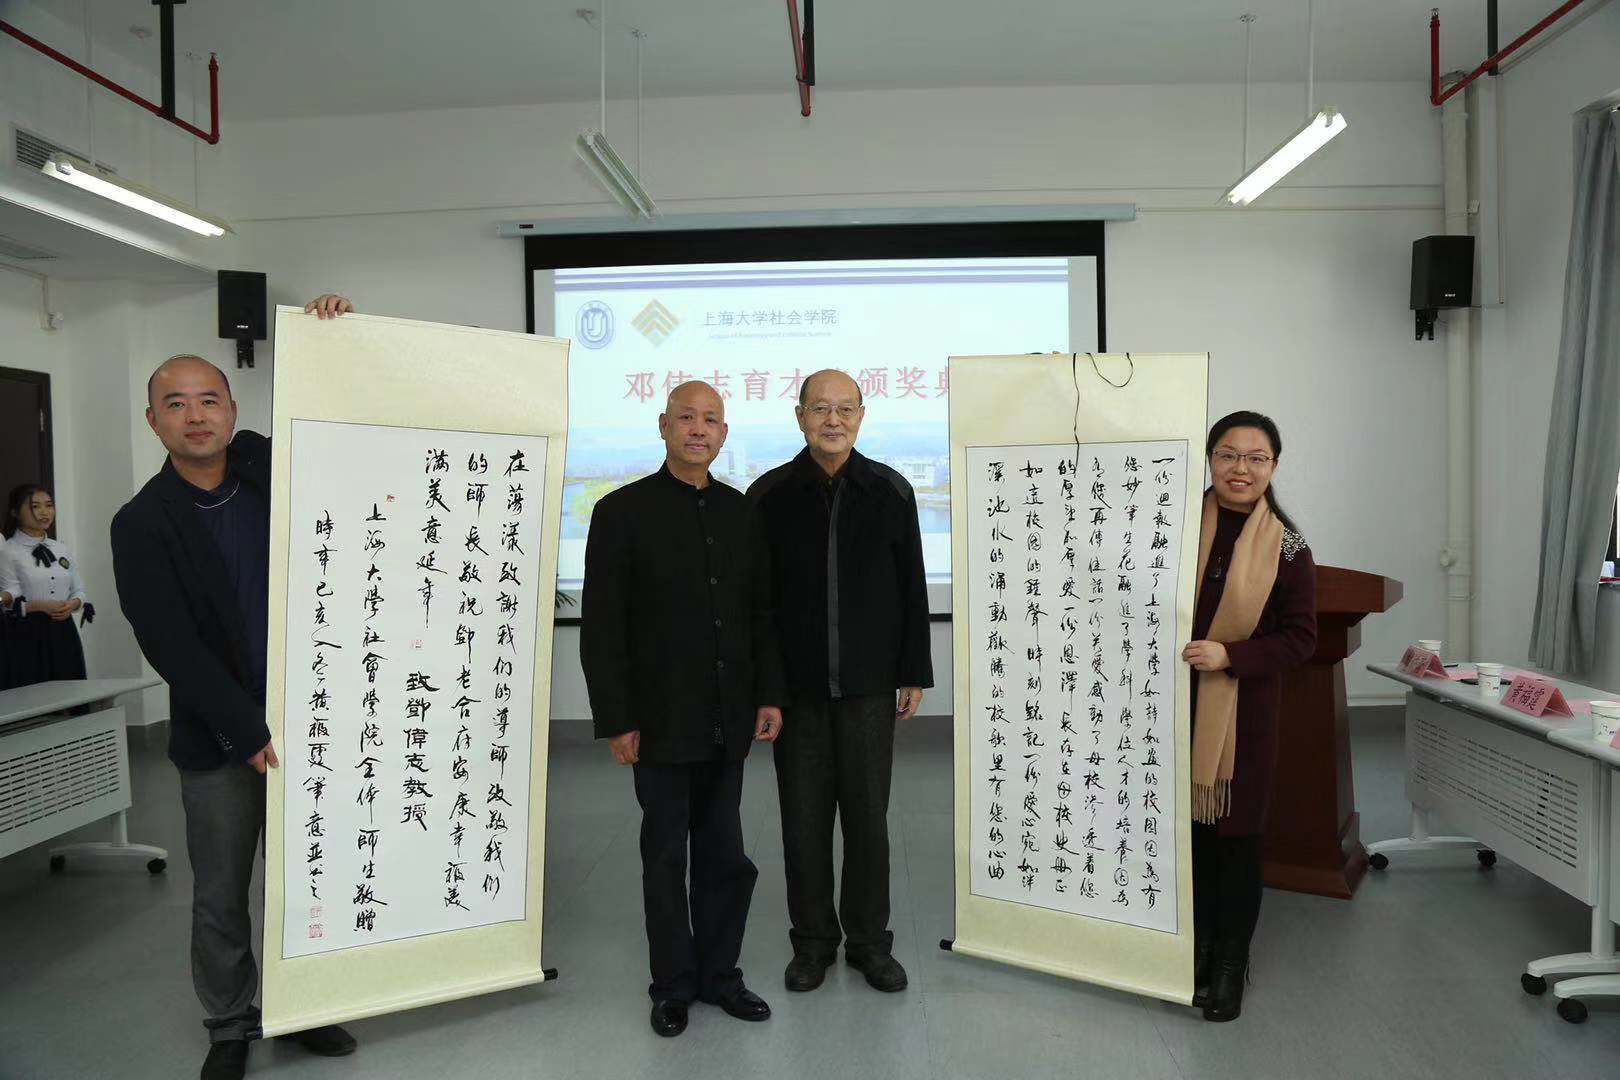 上海大学社会学院
邓伟志育才 颁奖典
一份回報融進了上海大學如詩如畫的校園因為有
您妙筆生花融進了學科學位人才的培養因為
有您再傳佳話一份关愛感動了母校滲透着您
的厚望和厚愛一份恩澤長存在母校史册正
如這校园的鐘聲時刻銘記一份愛心宛如泮
深池水的涌動歡騰的校歌里有您的心曲
在蕩漾致謝我们的導師致敬我们
的師長敬祝鄧老合府安康幸福美
滿美意延年
致鄧偉志教授
上海大學社會學院全体師生敬贈
時年己亥入冬 黄福 筆意並書之